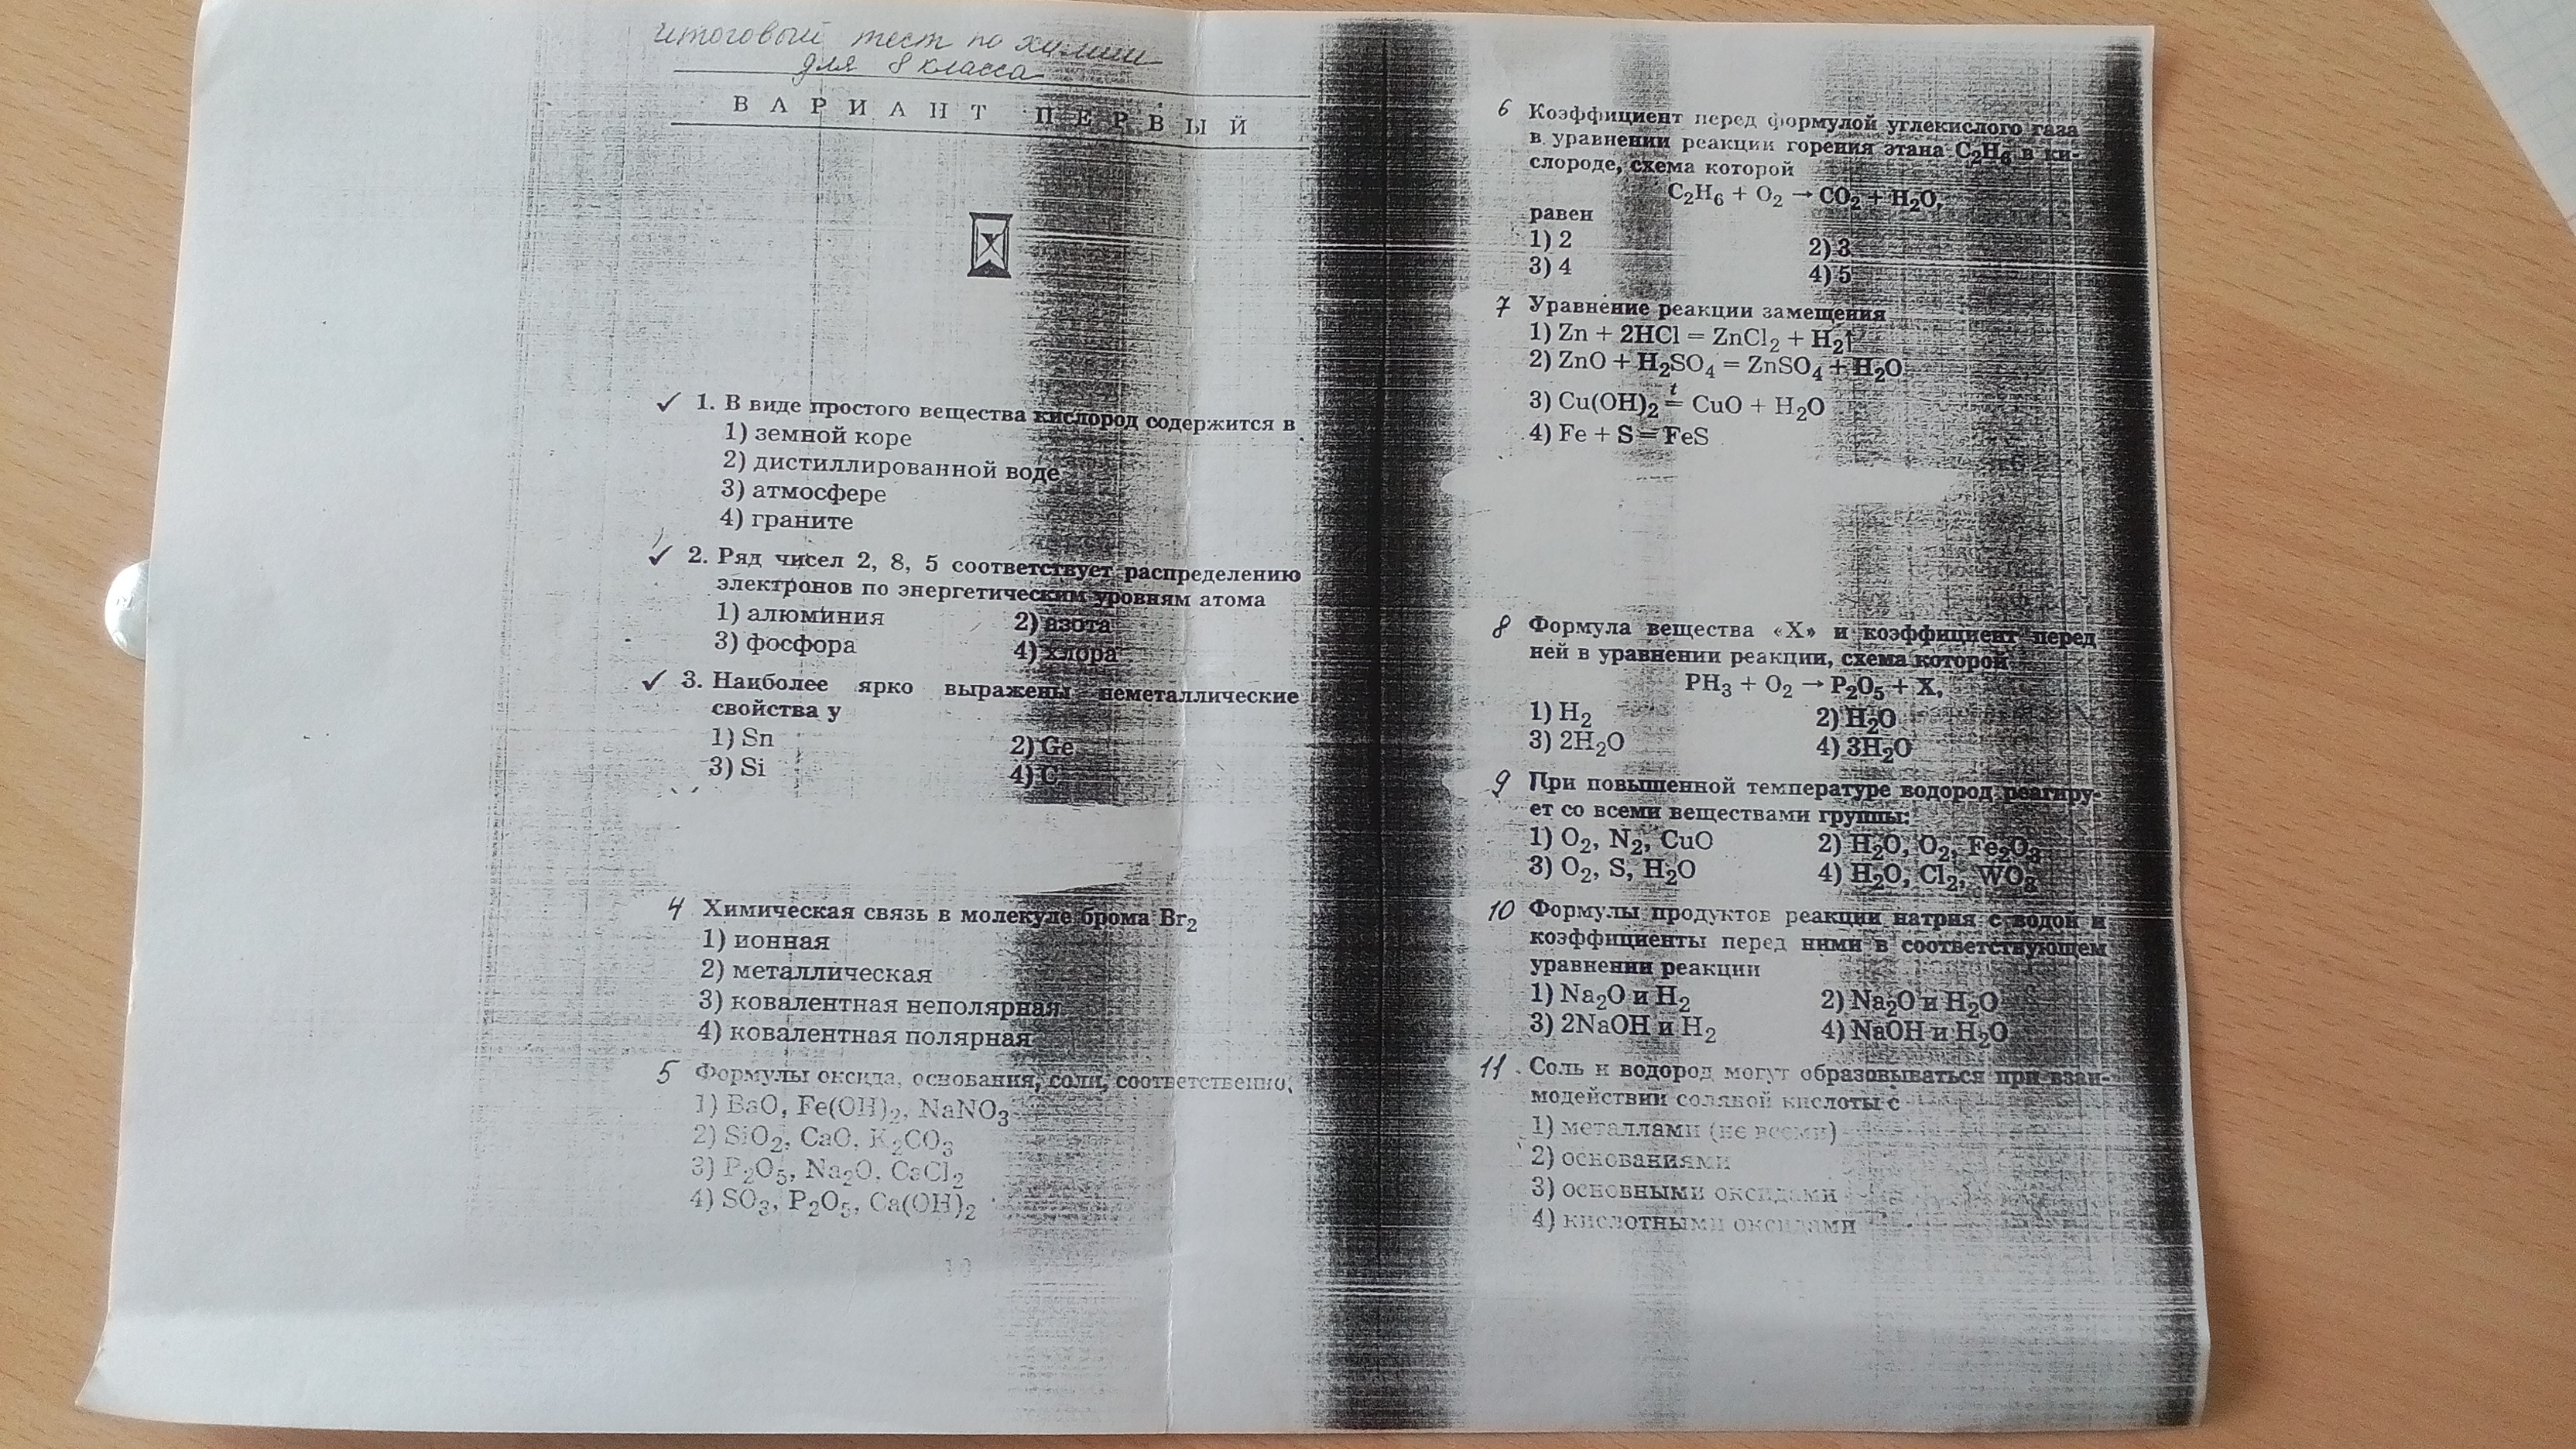 итоговый тест по химии
для 8 класса
ВАРИАНТ ПЕРВЫЙ
✓ 1. В виде простого вещества кислород содержится в
1) земной коре
2) дистиллированной воде
3) атмосфере
4) граните
✓ 2. Ряд чисел 2, 8, 5 соответствует распределению
электронов по энергетическим уровням атома
1) алюминия 2) азота
3) фосфора 4) хлора
✓ 3. Наиболее ярко выражены неметаллические
свойства у
1) Sn 2) Ge
3) Si 4) C
4 Химическая связь в молекуле брома Br₂
1) ионная
2) металлическая
3) ковалентная неполярная
4) ковалентная полярная
5 Формулы оксида, основания, соли, соответственно,
1) BaO, Fe(OH)₂, NaNO₃
2) SiO₂, CaO, K₂CO₃
3) P₂O₅, Na₂O, CaCl₂
4) SO₃, P₂O₅, Ca(OH)₂
10
6 Коэффициент перед формулой углекислого газа
в уравнении реакции горения этана C₂H₆ в ки-
слороде, схема которой
C₂H₆ + O₂ → CO₂ + H₂O,
равен
1) 2 2) 3
3) 4 4) 5
7 Уравнение реакции замещения
1) Zn + 2HCl = ZnCl₂ + H₂↑
2) ZnO + H₂SO₄ = ZnSO₄ + H₂O
t
3) Cu(OH)₂ = CuO + H₂O
4) Fe + S = FeS
8 Формула вещества «X» и коэффициент перед
ней в уравнении реакции, схема которой
PH₃ + O₂ → P₂O₅ + X,
1) H₂ 2) H₂O
3) 2H₂O 4) 3H₂O
9 При повышенной температуре водород реагиру-
ет со всеми веществами группы:
1) O₂, N₂, CuO 2) H₂O, O₂, Fe₂O₃
3) O₂, S, H₂O 4) H₂O, Cl₂, WO₃
10 Формулы продуктов реакции натрия с водой и
коэффициенты перед ними в соответствующем
уравнении реакции
1) Na₂O и H₂ 2) Na₂O и H₂O
3) 2NaOH и H₂ 4) NaOH и H₂O
11. Соль и водород могут образовываться при взаи-
модействии соляной кислоты с
1) металлами (не всеми)
2) основаниями
3) основными оксидами
4) кислотными оксидами